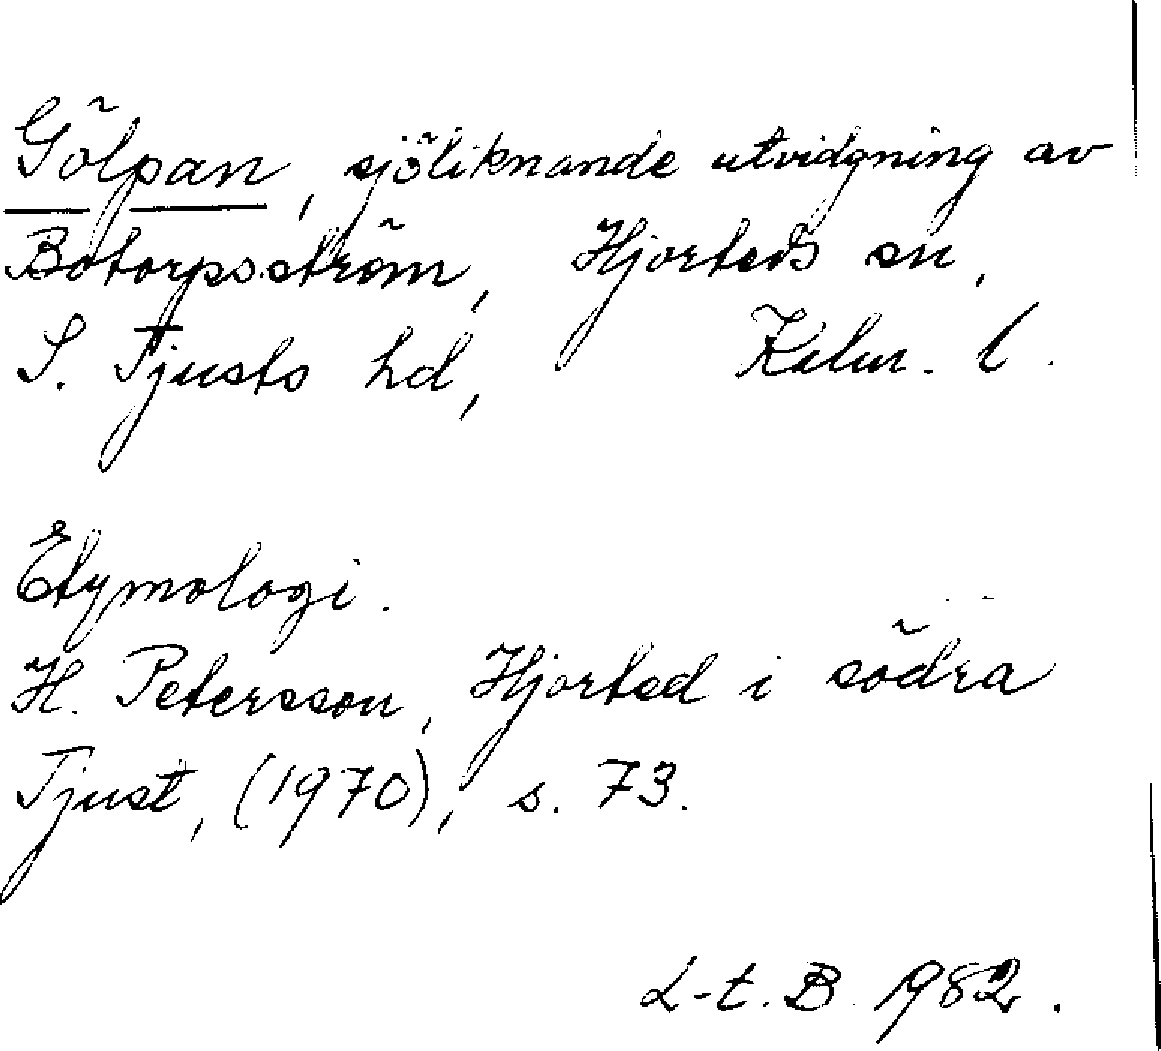 Gölpan, sjöliknande utvidgning av
Botorpsström, Hjorteds sn,
S. Tjusts hd, Kalm. l.
Etymologi.
H. Petersson, Hjorted i södra
Tjust, (1970), s. 73.
L-t. B. 1982.